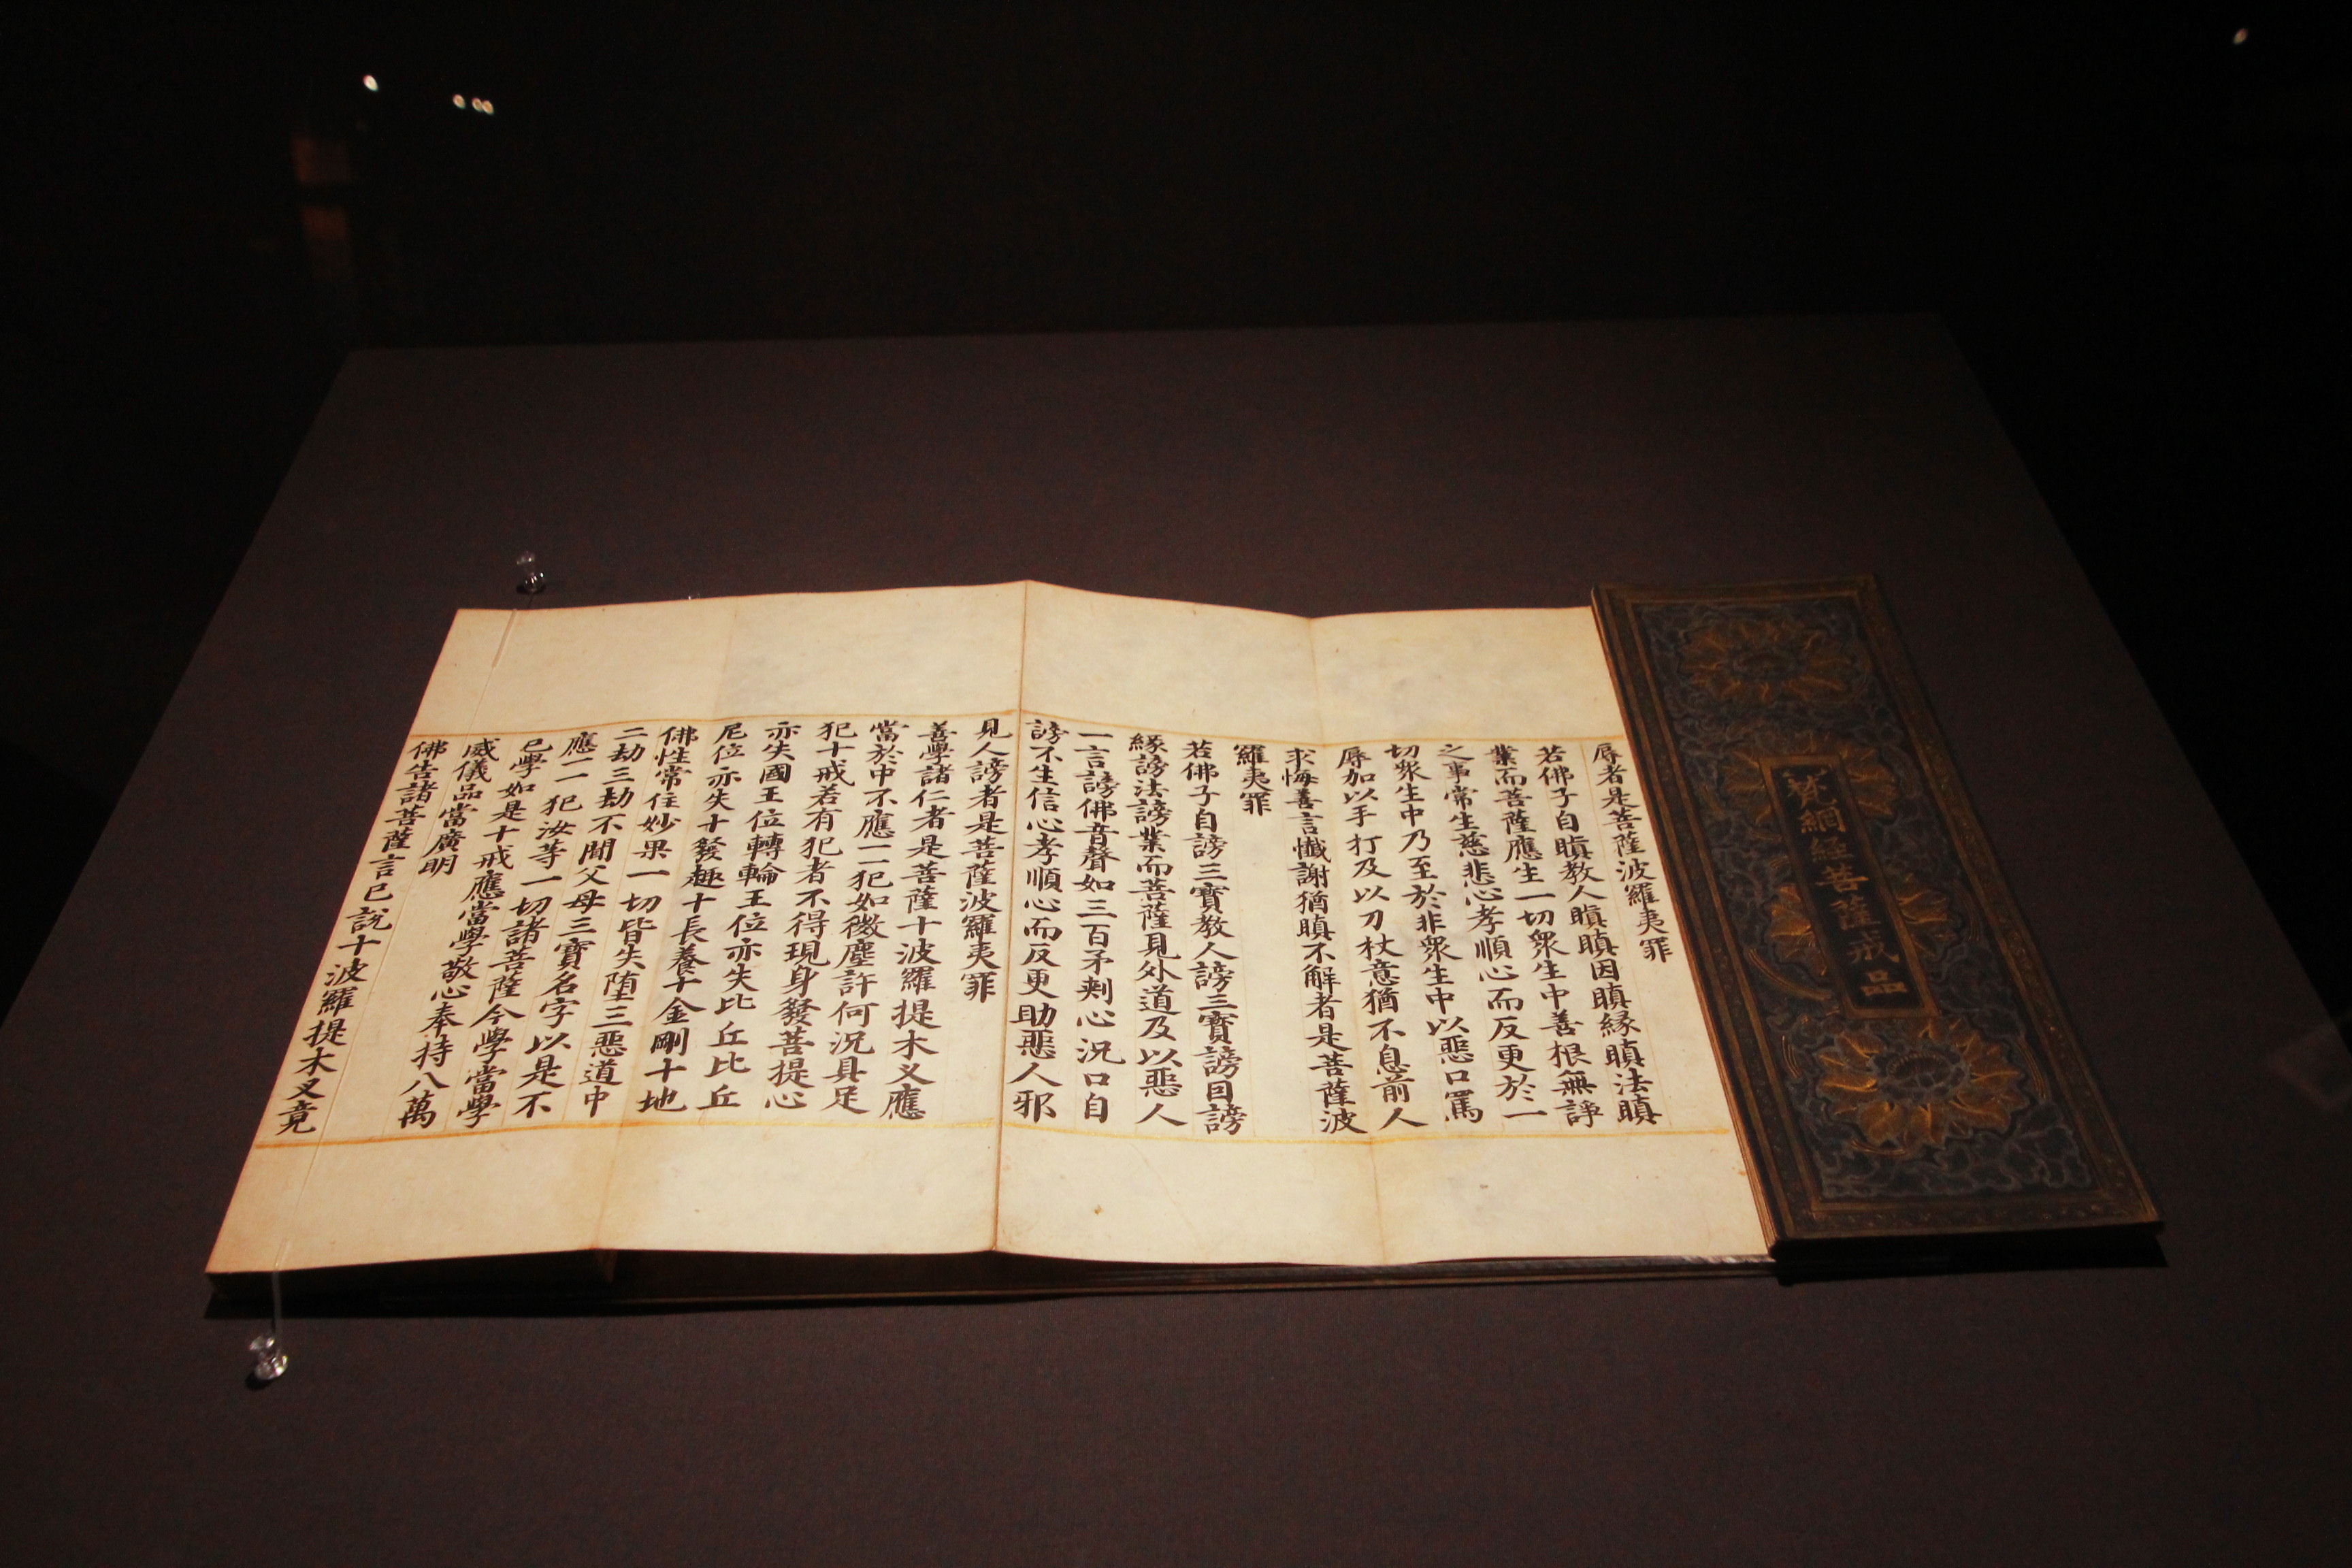 梵網經菩薩戒品
辱者是菩薩波羅夷罪
若佛子自瞋教人瞋瞋因瞋緣瞋法瞋
業而菩薩應生一切衆生中善根無諍
之事常生慈悲心孝順心而反更於一
切衆生中乃至於非衆生中以惡口罵
辱加以手打及以刀杖意猶不息前人
求悔善言懺謝猶瞋不解者是菩薩波
羅夷罪
若佛子自謗三寶教人謗三寶謗因謗
緣謗法謗業而菩薩見外道及以惡人
一言謗佛音聲如三百矛刺心況口自
謗不生信心孝順心而反更助惡人邪
見人謗者是菩薩波羅夷罪
善學諸仁者是菩薩十波羅提木叉應
當於中不應一一犯如微塵許何況具足
犯十戒若有犯者不得現身發菩提心
亦失國王位轉輪王位亦失比丘比丘
尼位亦失十發趣十長養十金剛十地
佛性常住妙果一切皆失墮三惡道中
二劫三劫不聞父母三寶名字以是不
應一一犯汝等一切諸菩薩今學當學
已學如是十戒應當學敬心奉持八萬
威儀品當廣明
佛告諸菩薩言已說十波羅提木叉竟